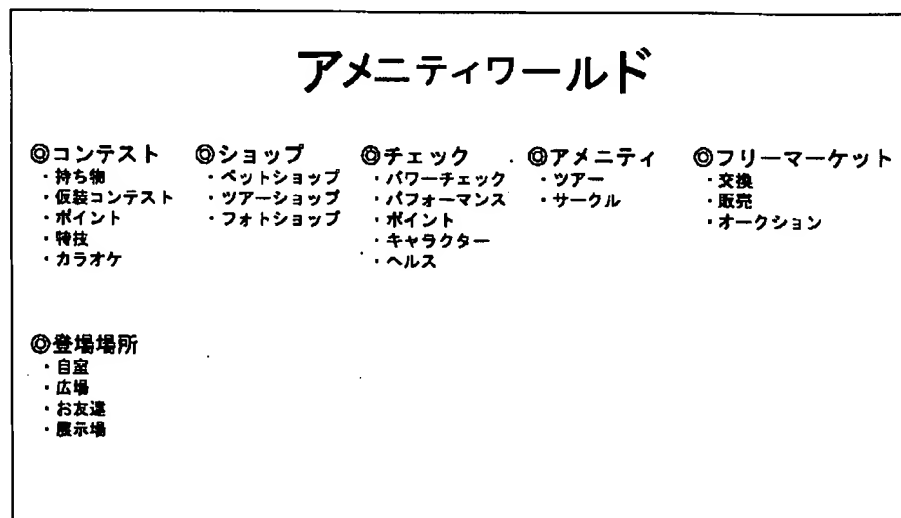 アメニティワールド
◎コンテスト
・持ち物
・仮装コンテスト
・ポイント
・特技
・カラオケ
◎ショップ
・ペットショップ
・ツアーショップ
・フォトショップ
◎チェック
・パワーチェック
・パフォーマンス
・ポイント
・キャラクター
・ヘルス
◎アメニティ
・ツアー
・サークル
◎フリーマーケット
・交換
・販売
・オークション
◎登場場所
・自室
・広場
・お友達
・展示場